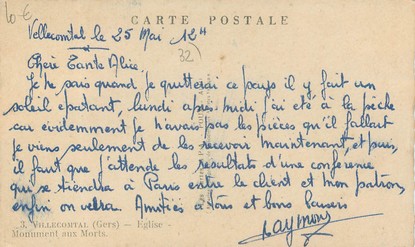 10 €
CARTE POSTALE
Villecomtal le 25 Mai 12H
(32)
Chère Tante Alice.
Je ne sais quand je quitterai ce pays il y fait un
soleil epatant, lundi après midi j'ai eté à la pêche
car evidemment je n'avais pas les pièces qu'il fallait
je viens seulement de les recevoir maintenant, et puis,
il faut que j'attende les resultats d'une conférence
qui se tiendra à Paris entre le client et mon patron,
enfin on verra. Amitiés à tous et bons baisers
Raymond
3. VILLECOMTAL (Gers) - Eglise -
Monument aux Morts.